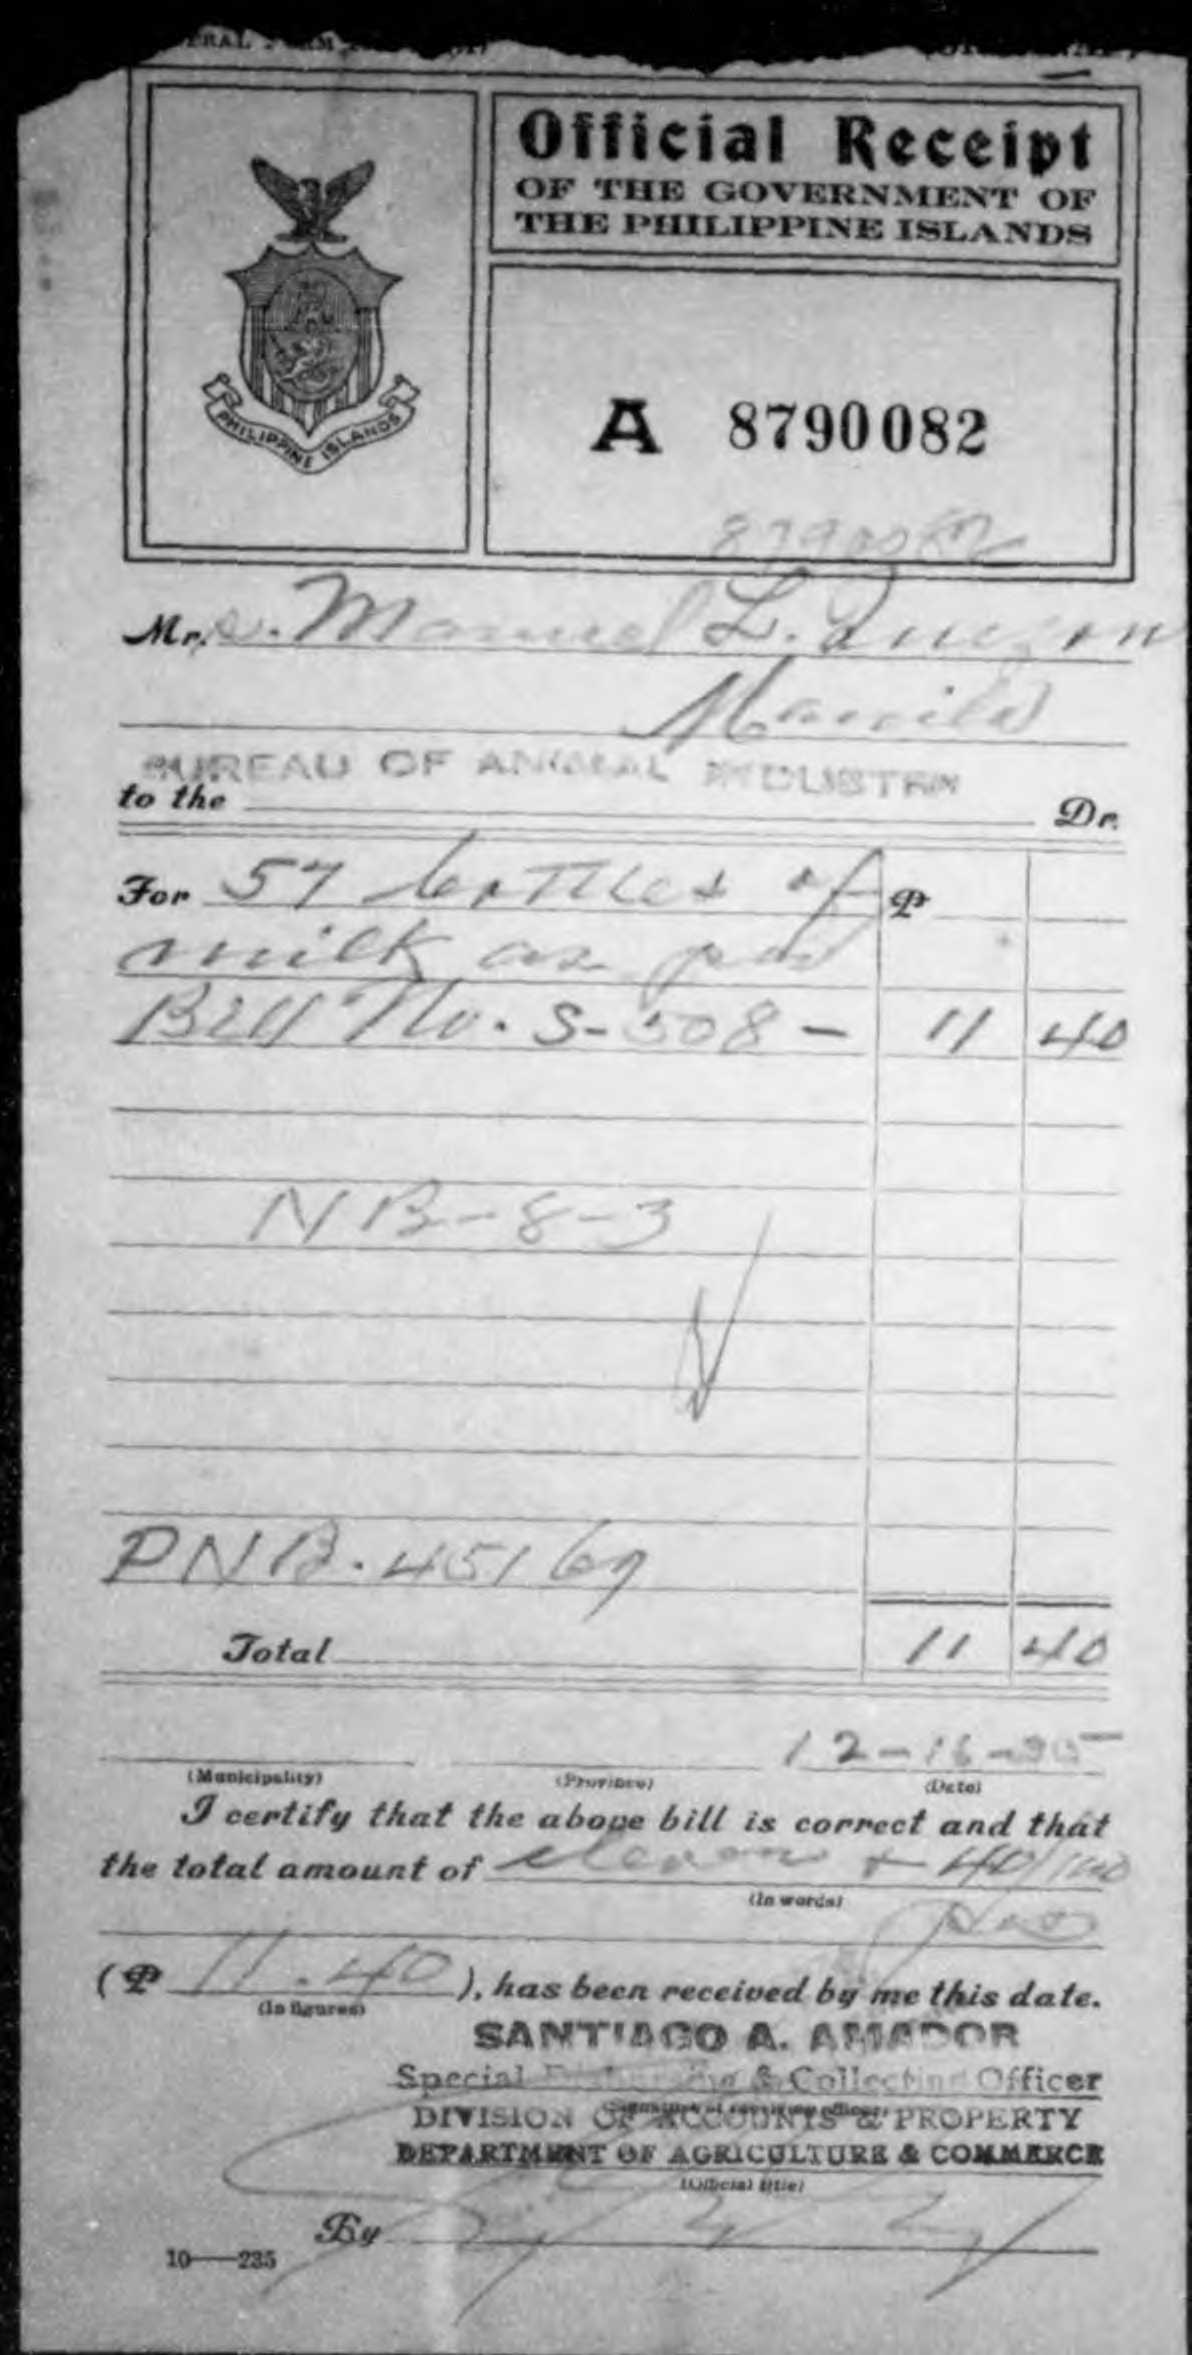 Official Receipt
OF THE GOVERNMENT OF
THE PHILIPPINE ISLANDS
PHILIPPINE ISLANDS
A 8790082
8790082
Mrs. Manuel L. Quezon
Manila
BUREAU OF ANIMAL INDUSTRY
to the Dr.
For 57 bottles of ₱
milk as per
Bill No. S-508 - 11 40
NB-8-3
PNB. 45167
Total 11 40
12-16-35
(Municipality) (Province) (Date)
I certify that the above bill is correct and that
the total amount of eleven + 40/100
(In words)
(₱ 11.40), has been received by me this date.
(In figures)
SANTIAGO A. AMADOR
Special Disbursing & Collecting Officer
DIVISION OF ACCOUNTS & PROPERTY
DEPARTMENT OF AGRICULTURE & COMMERCE
(Official title)
By
10—235